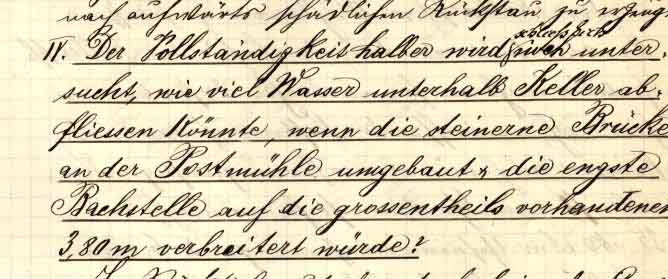 nach aufwärts schädlichen Rückstau zu erzeug
IV. Der Vollständigkeit halber wird auch unter-
sucht, wie viel Wasser unterhalb Keller ab-
fliessen könnte, wenn die steinerne Brücke
an der Postmühle umgebaut & die engste
Bachstelle auf die grossentheils vorhandenen
3,80 m verbreitert würde?